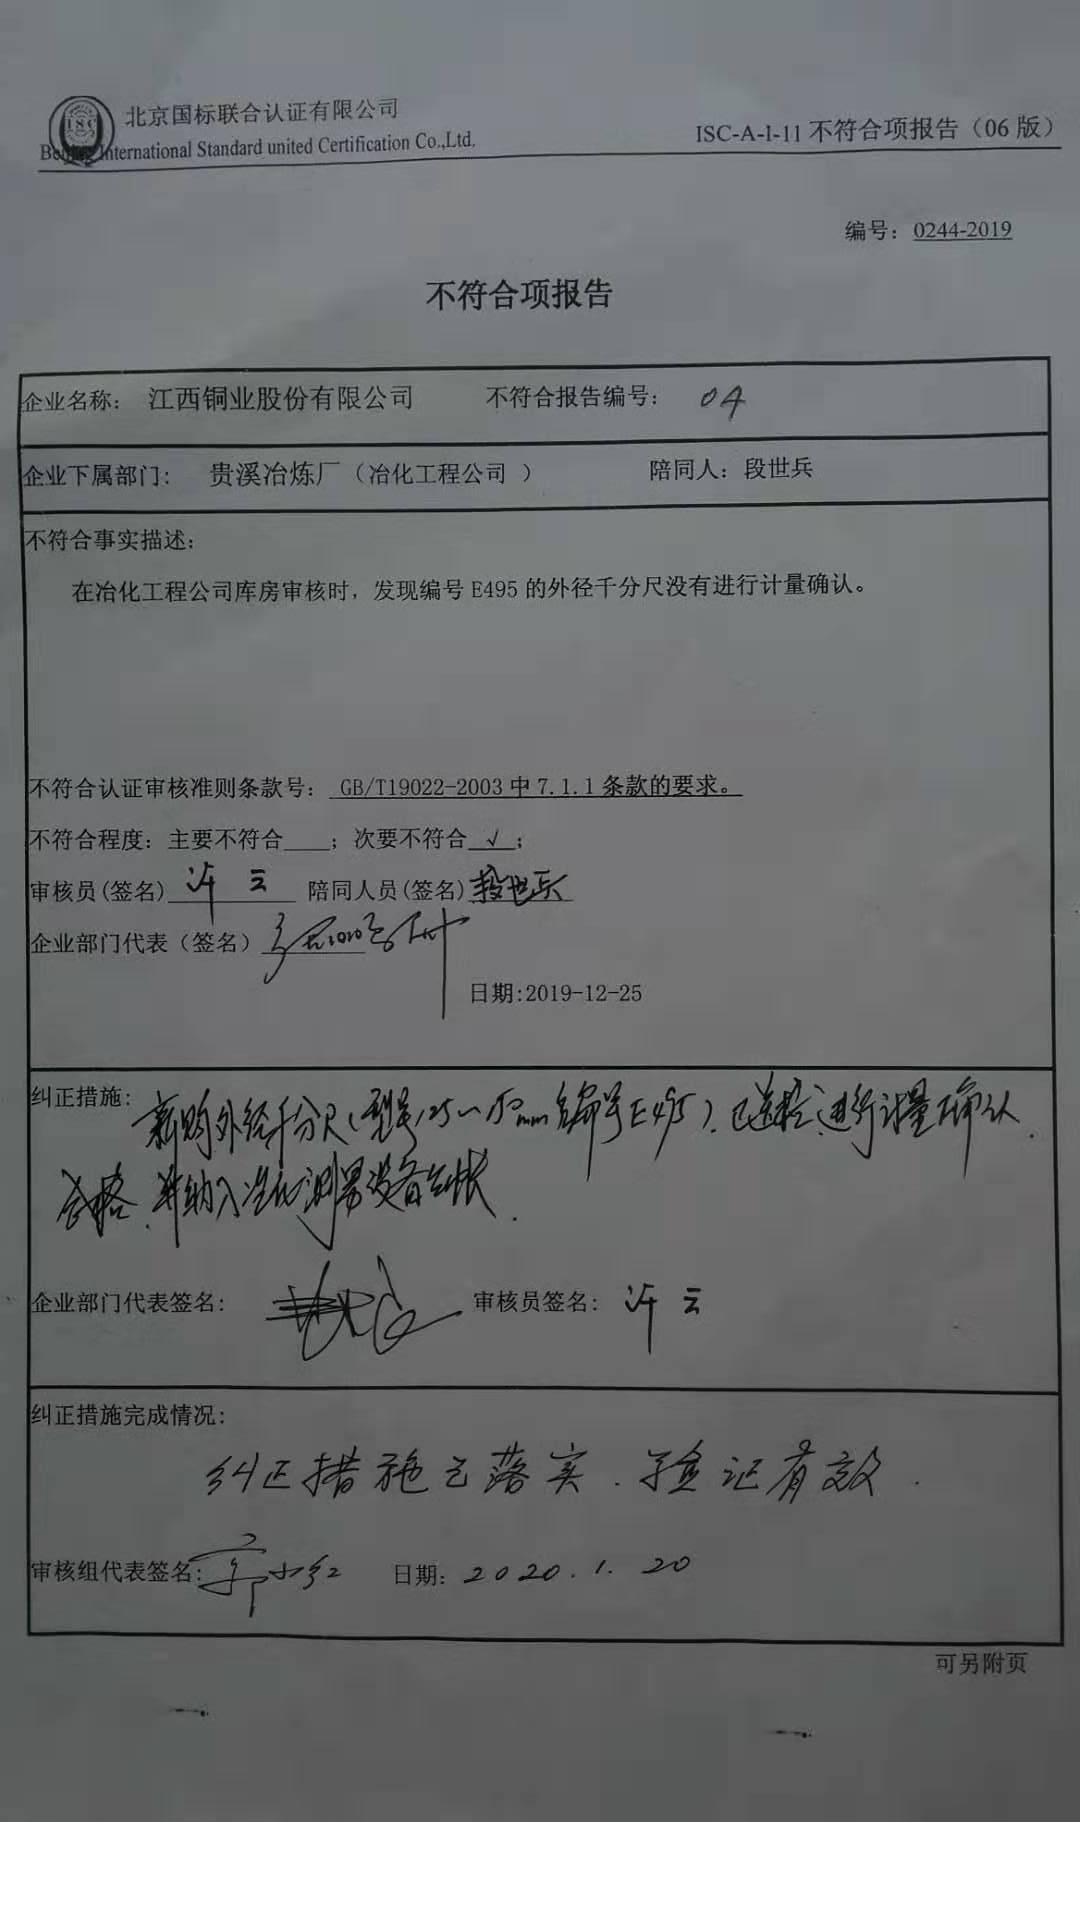 北京国标联合认证有限公司
Beijing International Standard united Certification Co.,Ltd.
ISC-A-I-11 不符合项报告（06 版）
编号：0244-2019
不符合项报告
企业名称： 江西铜业股份有限公司 不符合报告编号： 04
企业下属部门： 贵溪冶炼厂（冶化工程公司 ） 陪同人：段世兵
不符合事实描述：
在冶化工程公司库房审核时，发现编号 E495 的外径千分尺没有进行计量确认。
不符合认证审核准则条款号： GB/T19022-2003 中 7.1.1 条款的要求。
不符合程度：主要不符合____；次要不符合 √ ；
审核员(签名) 许云 陪同人员(签名) 段世兵
企业部门代表（签名）
日期:2019-12-25
纠正措施：
新购外径千分尺(型号125~150mm 编号E495)．已送检进行计量确认．
合格．并纳入冶化测量设备台帐．
企业部门代表签名： 审核员签名： 许云
纠正措施完成情况：
纠正措施已落实．验证有效．
审核组代表签名： 日期： 2020.1.20
可另附页